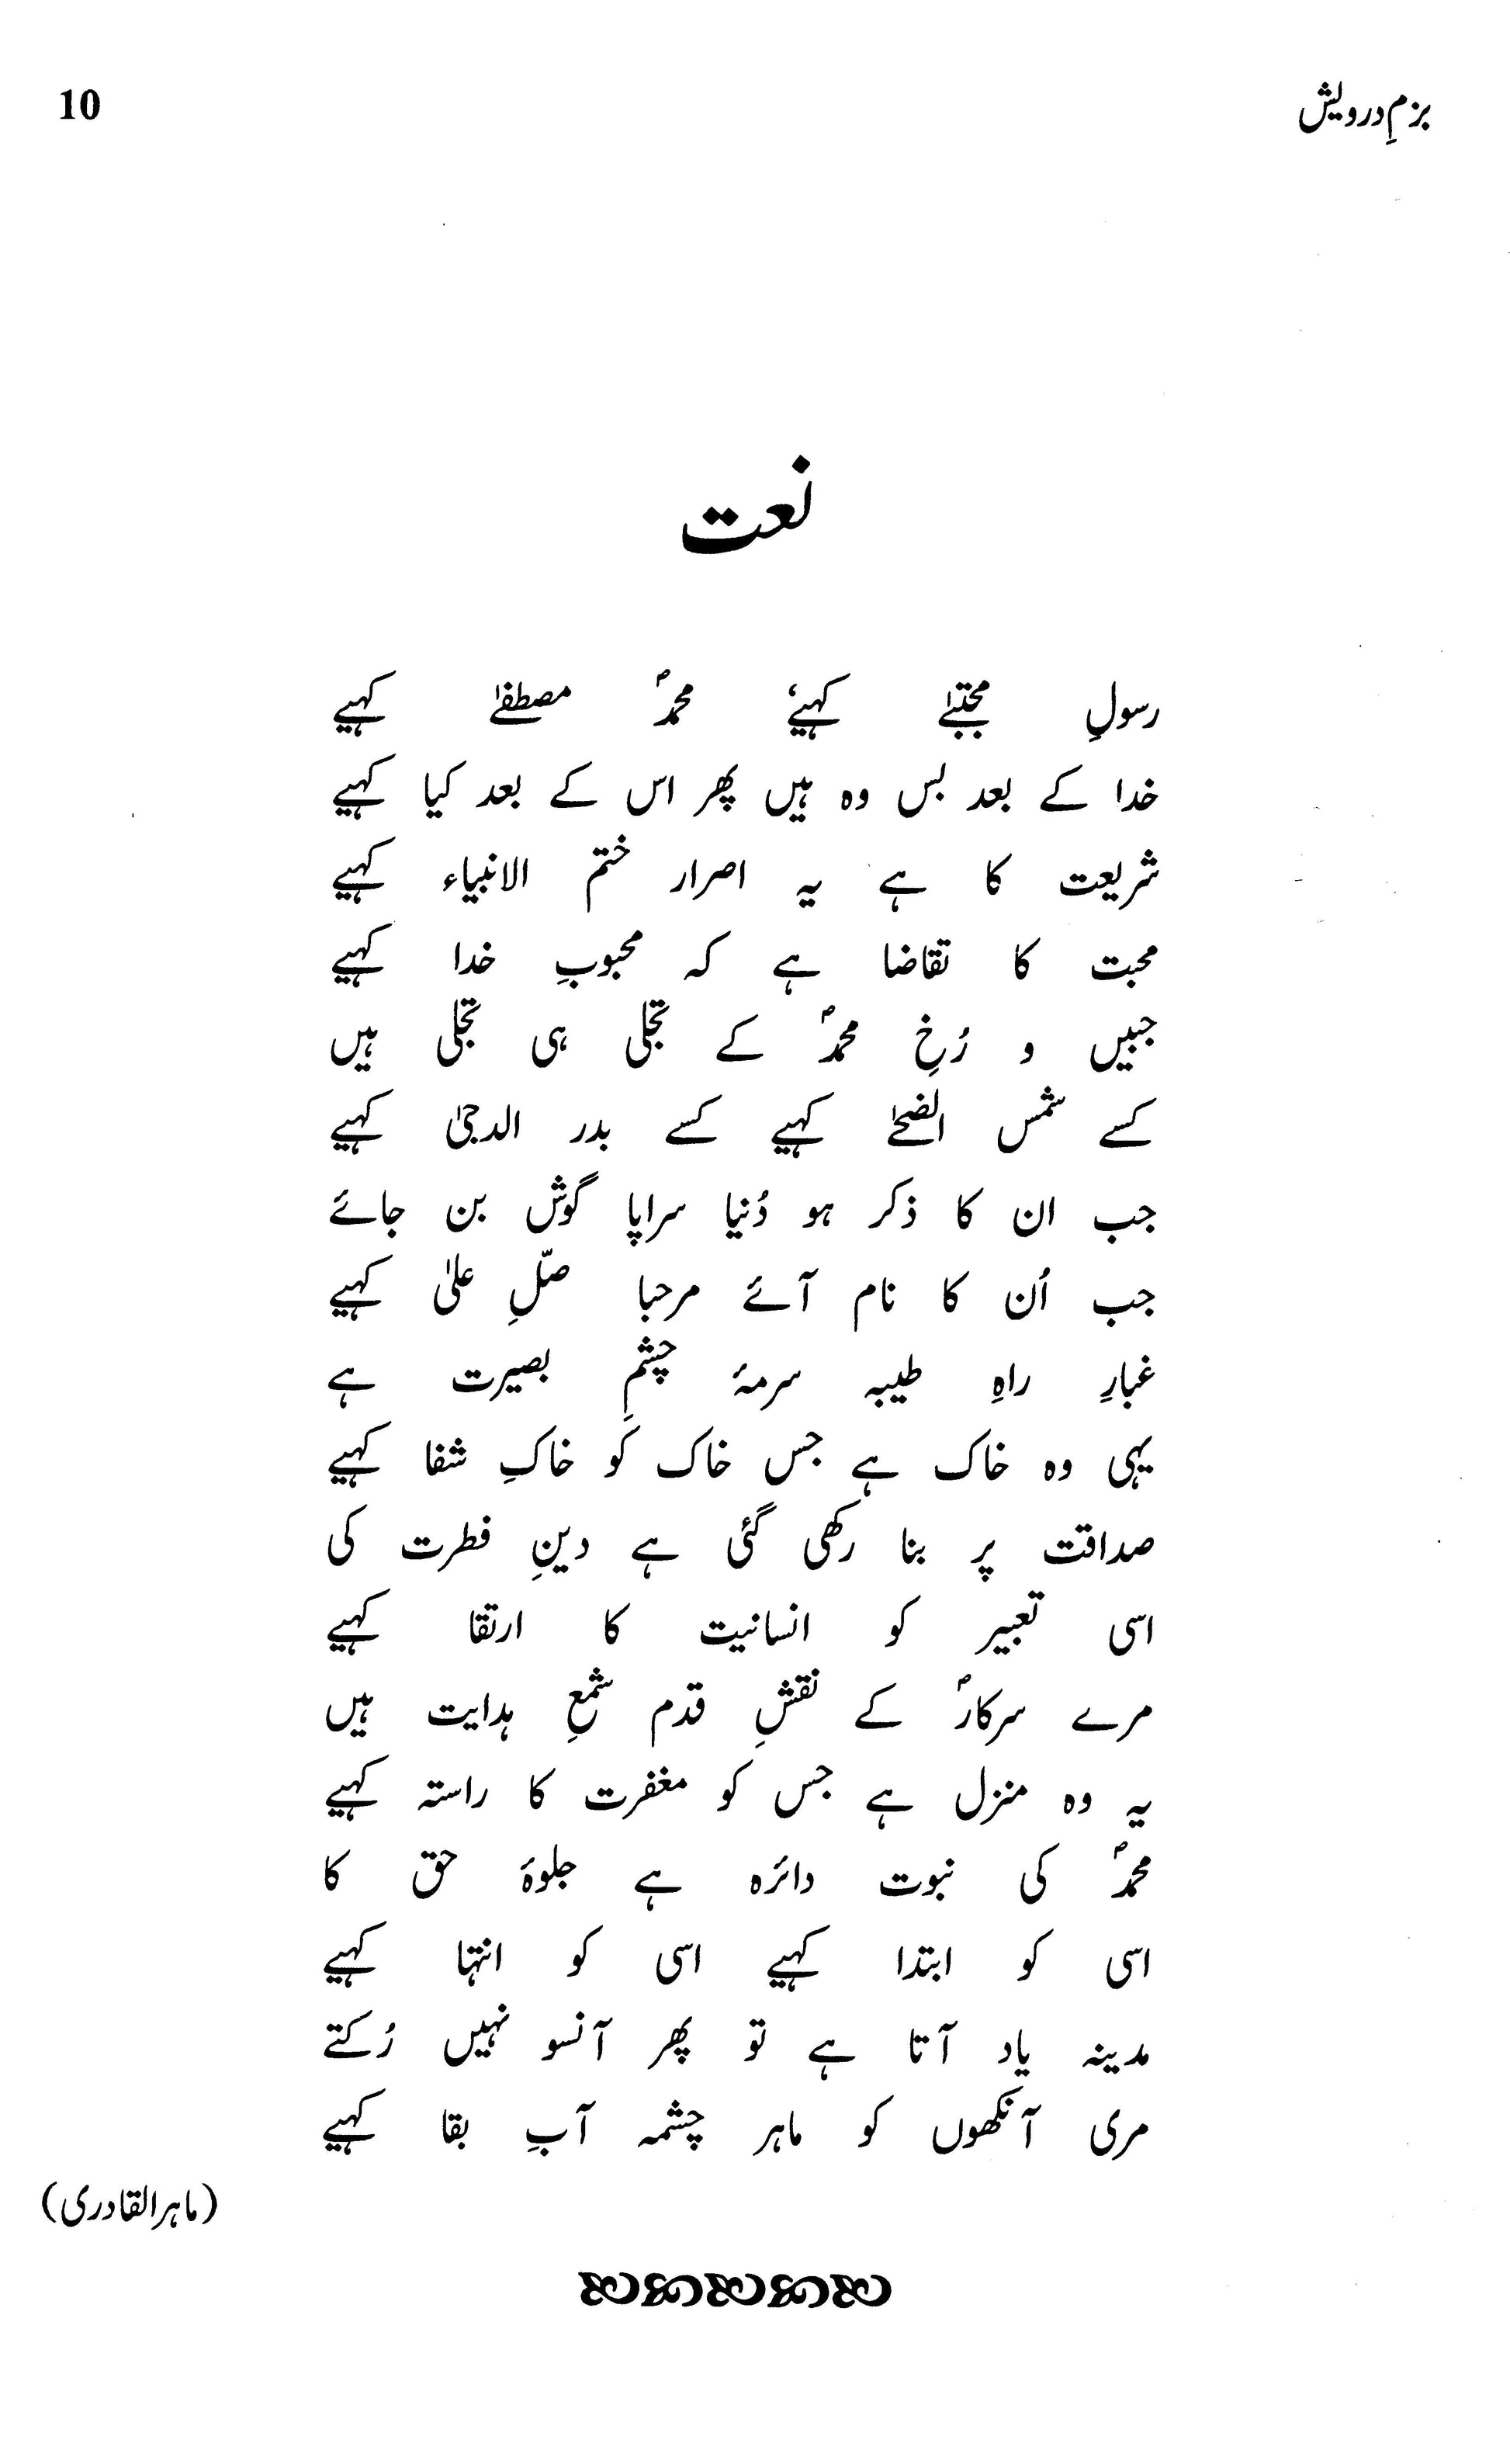 بزمِ درویش 10
نعت
رسولِ مجتبےٰ کہیے، محمدؐ مصطفےٰ کہیے
خدا کے بعد بس وہ ہیں پھر اس کے بعد کیا کہیے
شریعت کا ہے یہ اصرار ختم الانبیاء کہیے
محبت کا تقاضا ہے کہ محبوبِ خدا کہیے
جبیں و رُخِ محمدؐ کے تجلی ہی تجلی ہیں
کسے شمس الضحےٰ کہیے کسے بدر الدجیٰ کہیے
جب ان کا ذکر ہو دُنیا سراپا گوش بن جائے
جب اُن کا نام آئے مرحبا صلّ�ِ علیٰ کہیے
غبارِ راہِ طیبہ سرمۂ چشمِ بصیرت ہے
یہی وہ خاک ہے جس خاک کو خاکِ شفا کہیے
صداقت پر بنا رکھی گئی ہے دینِ فطرت کی
اسی تعبیر کو انسانیت کا ارتقا کہیے
مرے سرکارؐ کے نقشِ قدم شمعِ ہدایت ہیں
یہ وہ منزل ہے جس کو مغفرت کا راستہ کہیے
محمدؐ کی نبوت دائرہ ہے جلوۂ حق کا
اسی کو ابتدا کہیے اسی کو انتہا کہیے
مدینہ یاد آتا ہے تو پھر آنسو نہیں رُکتے
مری آنکھوں کو ماہر چشمہ آبِ بقا کہیے
(ماہرالقادری)